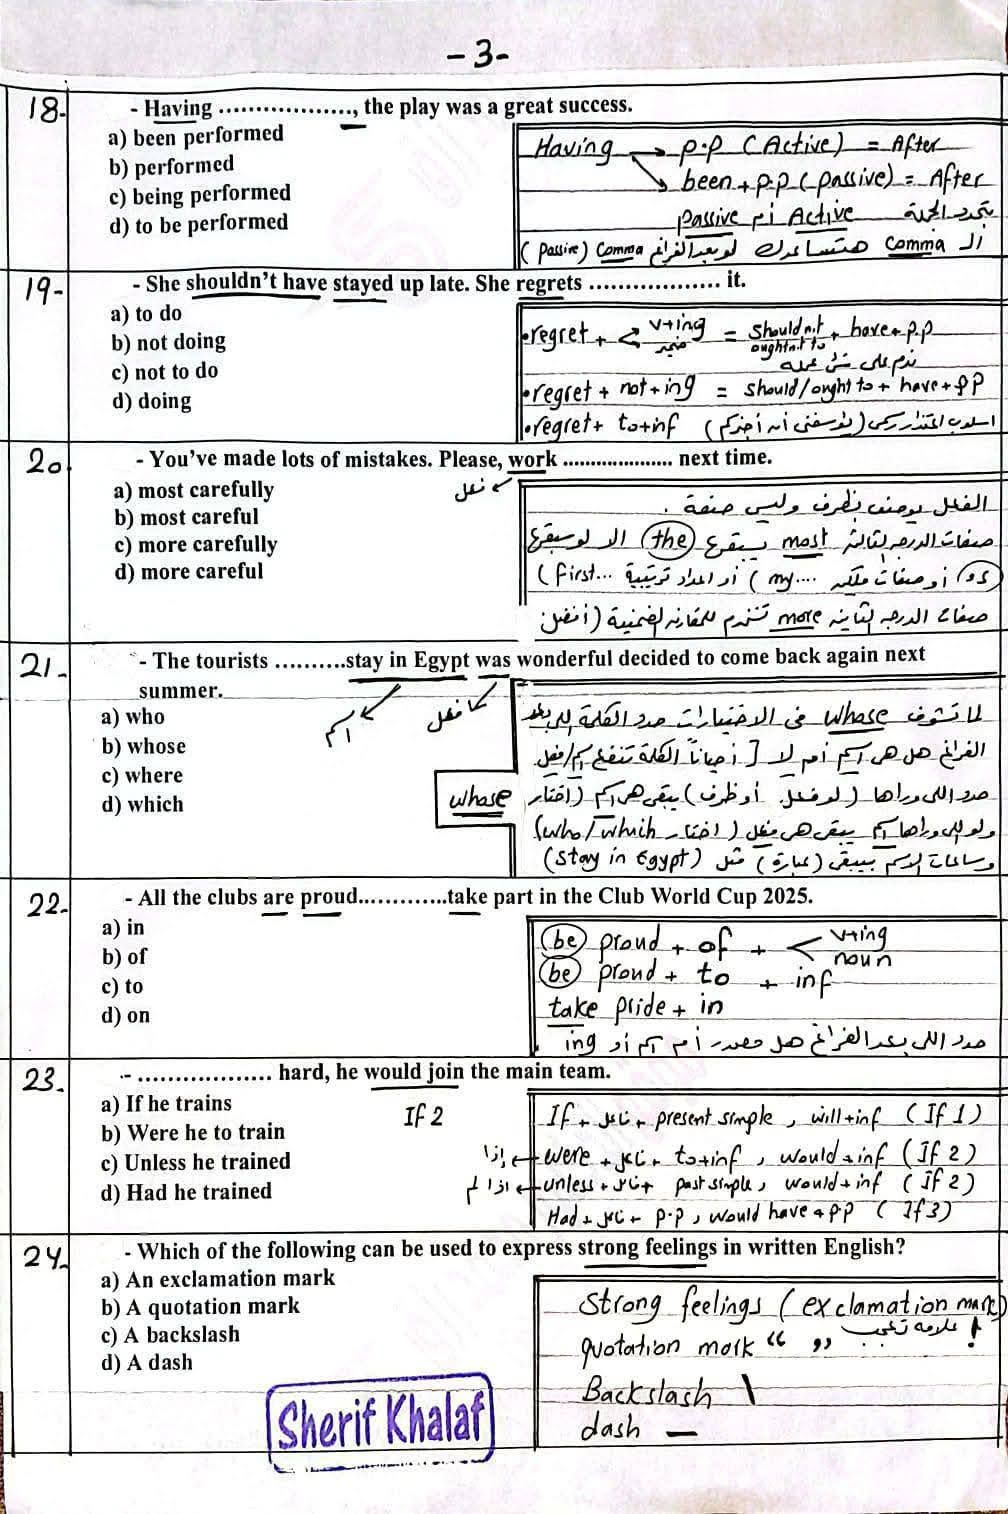 -3-
18- - Having ..................., the play was a great success.
a) been performed
b) performed
c) being performed
d) to be performed
Having → p.p (Active) = After
been + p.p (passive) = After
بتحدد الجملة Active أم passive
الـ comma هتساعدك لو بعد الفراغ comma (passive)
19- - She shouldn't have stayed up late. She regrets ................... it.
a) to do
b) not doing
c) not to do
d) doing
•regret + < v+ing = shouldn't + have + p.p
ضمير oughtn't to
ندم على شئ عمله
•regret + not + ing = should/ought to + have + p p
•regret + to+inf (يؤسفنى أن أخبركم)
20. - You've made lots of mistakes. Please, work .................... next time.
فعل
a) most carefully
b) most careful
c) more carefully
d) more careful
الفعل يوصف بظرف وليس صفة .
صفات الدرجه الثالثة most يسبقها (the) الا لو سبقها
('s) أو صفات ملكيه (my.... أو اعداد ترتيبية (first...
صفات الدرجه الثانيه more تستخدم للمقارنه الضمنية (أفضل
21. - The tourists ..........stay in Egypt was wonderful decided to come back again next
summer.
اسم
فعل
a) who
b) whose
c) where
d) which
whose
لما تشوف whose فى الاختيارات حدد الكلمة اللى بعد
الفراغ هل هى اسم أم لا [ أحياناً الكلمة تنفع اسم/فعل
حدد اللى وراها (لو فعل أو ظرف) يبقى هى اسم (اختار
ولو اللى وراها اسم يبقى هى فعل (اختار who/which)
وساعات الاسم بيبقى (عبارة) مثل (stay in Egypt)
22. - All the clubs are proud.............take part in the Club World Cup 2025.
a) in
b) of
c) to
d) on
(be) proud + of + < v+ing
noun
(be) proud + to + inf
take pride + in
حدد اللى بعد الفراغ هل مصدر أم اسم أو ing .
23. - ................... hard, he would join the main team.
a) If he trains
b) Were he to train
c) Unless he trained
d) Had he trained
If 2
If + فاعل + present simple , will+inf (If 1)
إذا ← were + فاعل + to+inf , would + inf (If 2)
اذا لم ← unless + فاعل + past simple, would + inf (If 2)
Had + فاعل + p.p , would have + p p (If 3)
24. - Which of the following can be used to express strong feelings in written English?
a) An exclamation mark
b) A quotation mark
c) A backslash
d) A dash
strong feelings (exclamation mark)
علامه تعجب !
quotation mark “ ”
Backslash \
dash —
Sherif Khalaf